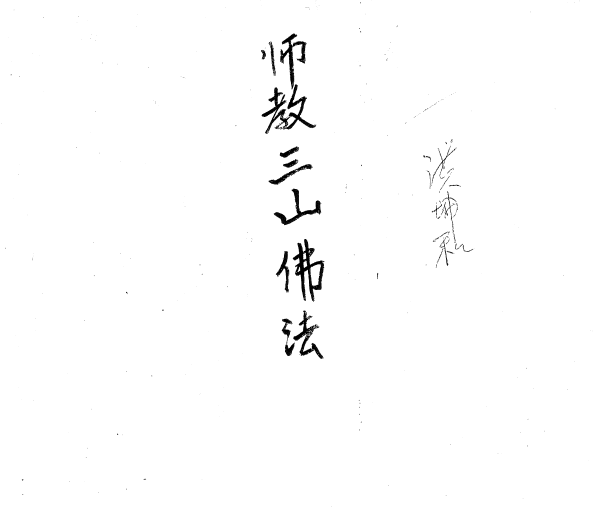 师教三山佛法
洪坤